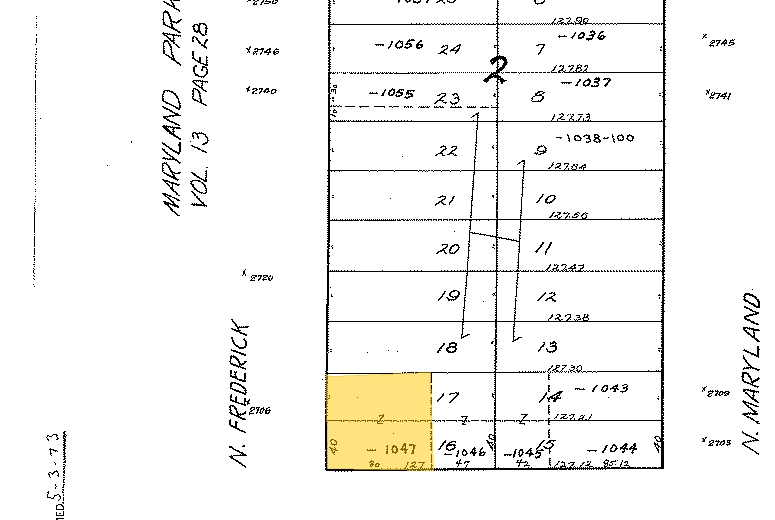 MARYLAND PARK
VOL. 13 PAGE 28
N. FREDERICK
N. MARYLAND
5-3-73
2
127.90
x2746
-1056 24
7 -1036
x2745
127.82
x2740
-1055 23
8 -1037
x2741
127.73
22
9 -1038-100
127.64
21
10
127.56
20
11
127.47
x2720
19
12
127.38
18
13
127.30
17
14 -1043
x2709
2706
Z
Z
Z
127.21
40
-1047
16
-1046
40
-1045
15
-1044
40
x2703
80
127
47
42
127.12
85.12